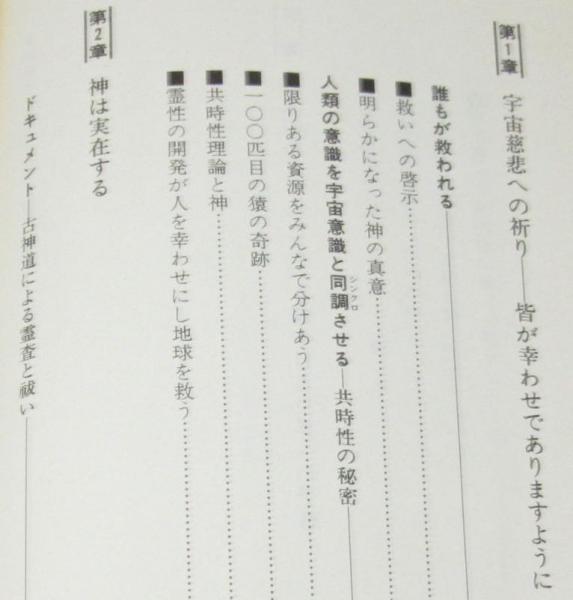 第1章 宇宙慈悲への祈り——皆が幸わせでありますように
誰もが救われる
■救いへの啓示
■明らかになった神の真意
人類の意識を宇宙意識と同調させる—共時性の秘密
シンクロ
■限りある資源をみんなで分けあう
■一〇〇匹目の猿の奇跡
■共時性理論と神
■霊性の開発が人を幸わせにし地球を救う
第2章 神は実在する
ドキュメント—古神道による霊査と祓い